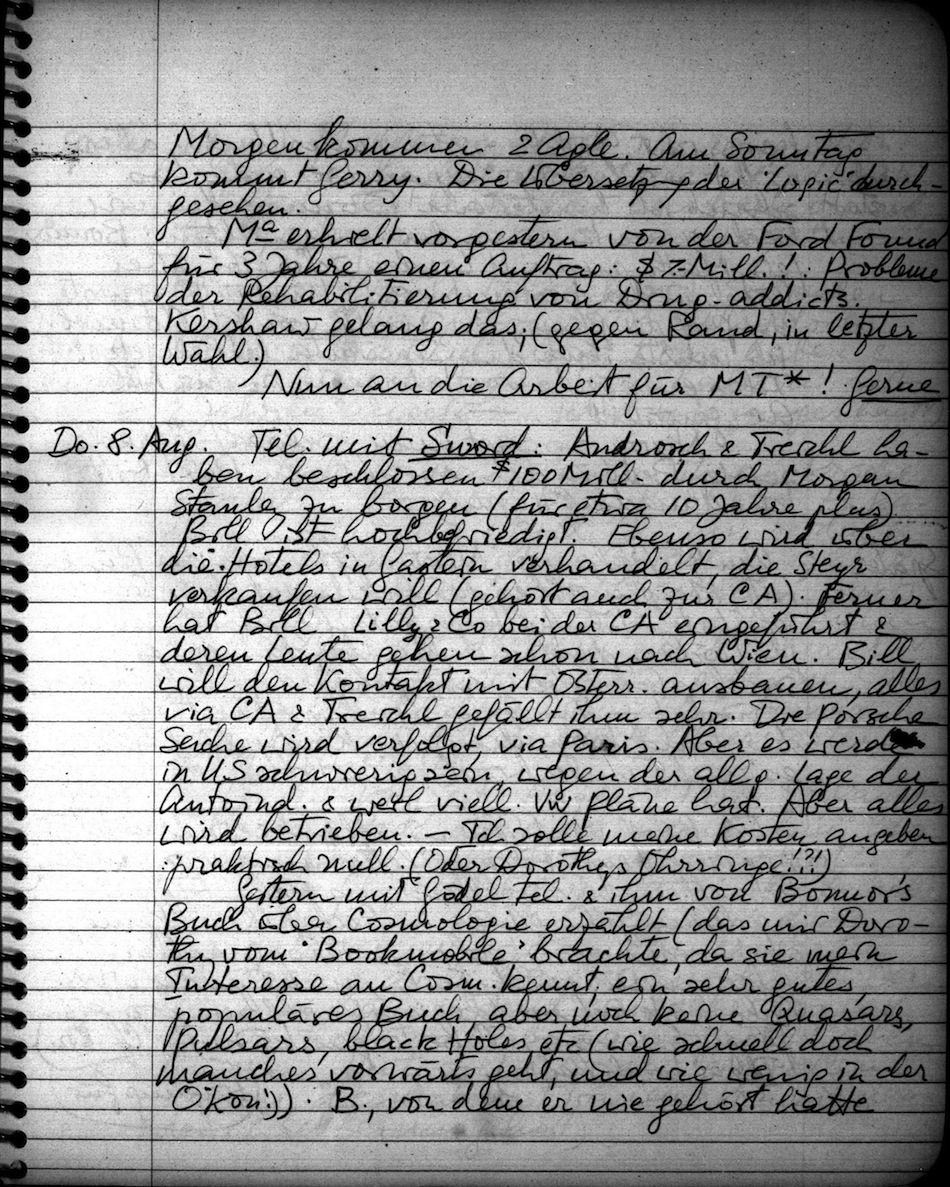 Morgen kommen 2 Agle. Am Sonntag
kommt Gerry. Die Übersetzg der 'Logic' durch-
gesehen.
Ma erhielt vorgestern von der Ford Found
für 3 Jahre einen Auftrag: $ Mill.! Probleme
der Rehabilitierung von Drug-addicts.
Kershaw gelang das, (gegen Rand, in letzter
Wahl.)
Nun an die Arbeit für MT*! Gerne
Do. 8. Aug. Tel. mit Sword: Androsch & Treichl ha-
ben beschlossen $100 Mill. durch Morgan
Stanley zu borgen (für etwa 10 Jahre plus)
Bill ist hochbefriedigt. Ebenso wird über
die Hotels in Gastein verhandelt, die Steyr
verkaufen will (gehört auch zur CA). Ferner
hat Bill Lilly & Co bei der CA eingeführt &
deren Leute gehen schon nach Wien. Bill
will den Kontakt mit Österr. ausbauen, alles
via CA & Treichl gefällt ihm sehr. Die Porsche
Sache wird verfolgt, via Paris. Aber es werde
in US schwierig sein, wegen der allg. Lage der
Autoind. & weil viell. VW Pläne hat. Aber alles
wird betrieben. — Ich solle meine Kosten angeben
praktisch null. (Oder Dorothys Ohrringe!?!)
Gestern mit Gödel tel. & ihm von Bonnor's
Buch über Cosmologie erzählt (das mir Doro-
thy vom 'Bookmobile' brachte, da sie mein
Interesse an Cosm. kennt, ein sehr gutes,
populäres Buch, aber noch keine Quasars,
Pulsars, black Holes etc (wie schnell doch
manches vorwärts geht, und wie wenig in der
Ökon.!)). B., von dem er nie gehört hatte